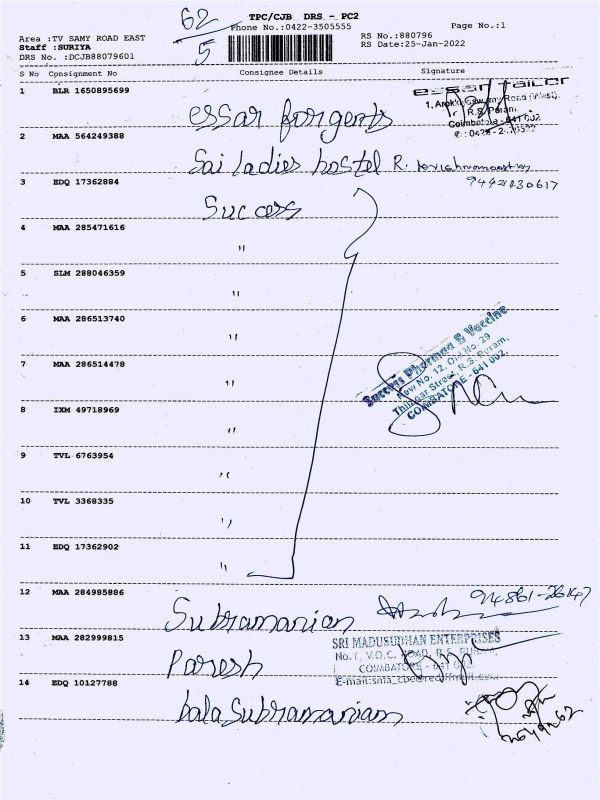 62
5
TPC/CJB DRS - PC2
Phone No.:0422-3505555
Page No.:1
Area :TV SAMY ROAD EAST
Staff :SURIYA
DRS No. :DCJB88079601
RS No.:880796
RS Date:25-Jan-2022
S No Consignment No Consignee Details Signature
1 BLR 1650895699
essar forgents
essar tailor
R.S. Puram
2 MAA 564249388
Sai ladies hostel R.
3 EDQ 17362884
9442230617
Success
4 MAA 285471616
"
5 SLM 288046359
"
6 MAA 286513740
"
7 MAA 286514478
"
8 IXM 49718969
"
9 TVL 6763954
"
10 TVL 3368335
"
11 EDQ 17362902
"
Success Pharmaa & Vaccine
New No. 12, Old No. 29
Thilagar Street, R.S. Puram,
COIMBATORE - 641 002.
12 MAA 284985886
Subramanian
94861-26147
13 MAA 282999815
Paresh
SRI MADUSUDHAN ENTERPRISES
No.7, V.O.C. ROAD, R.S. PURAM
COIMBATORE - 641 002
14 EDQ 10127788
bala Subramaniam